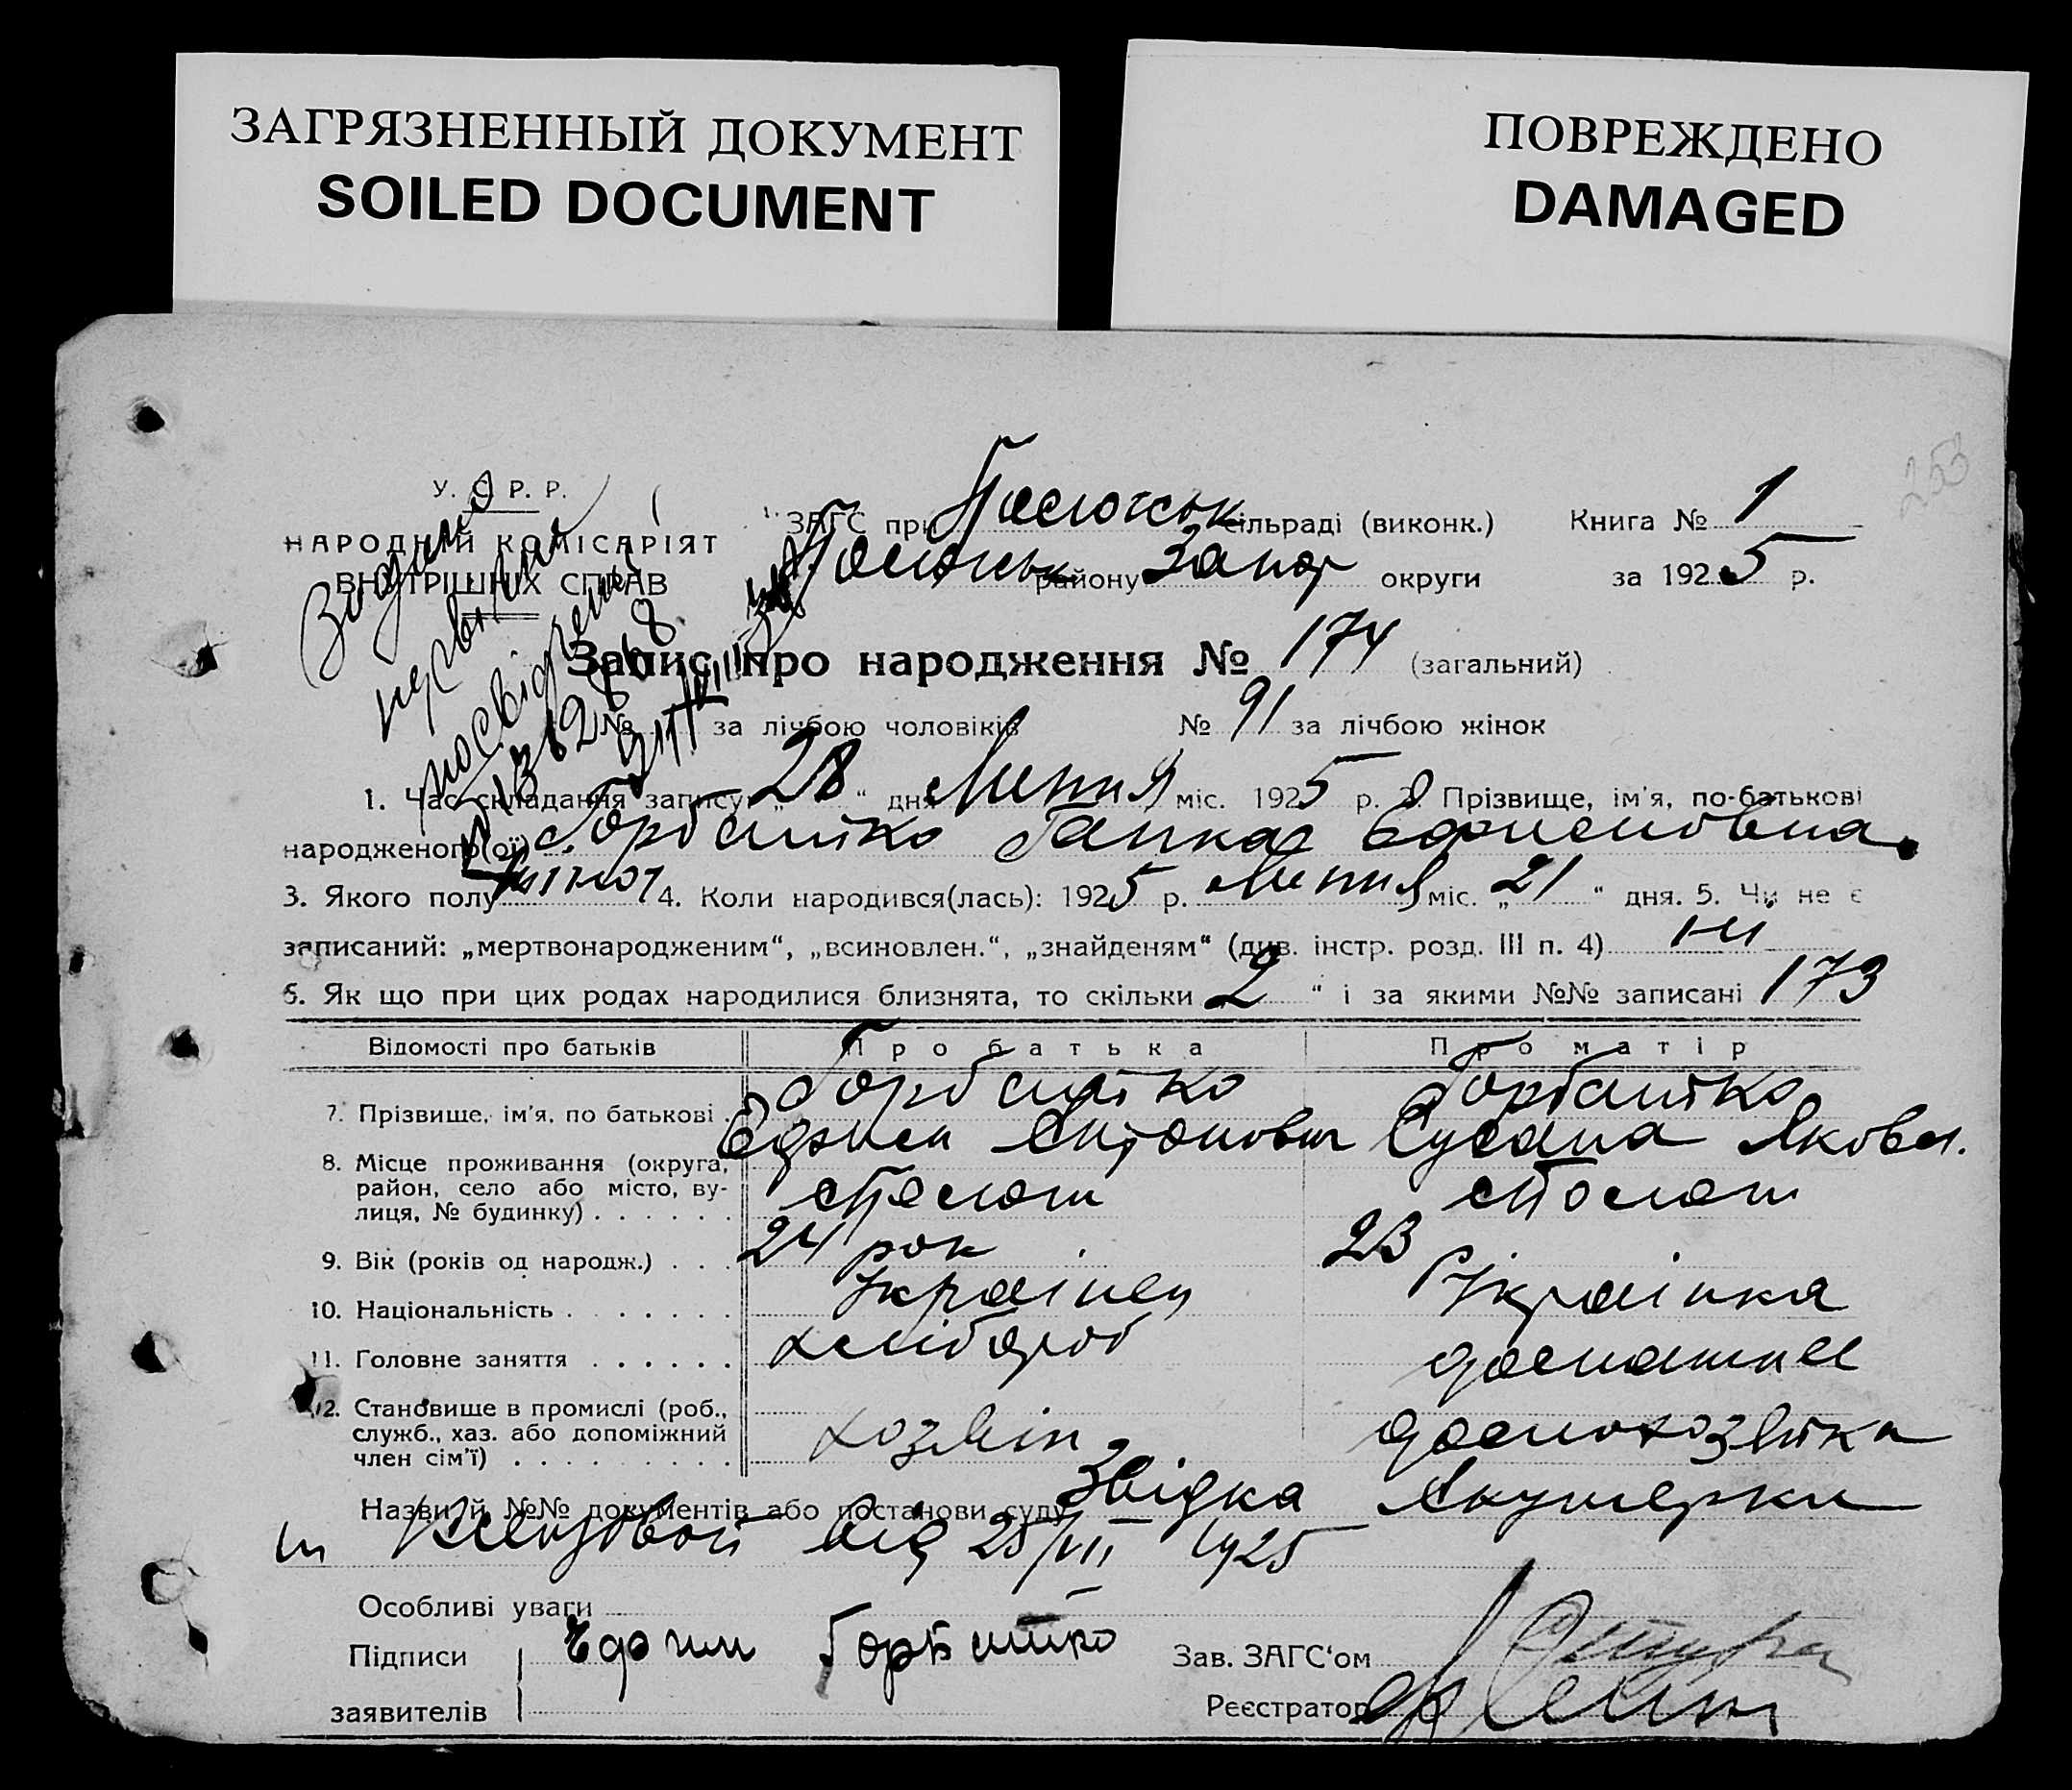 ЗАГРЯЗНЕННЫЙ ДОКУМЕНТ
SOILED DOCUMENT
ПОВРЕЖДЕНО
DAMAGED
253
У. С. Р. Р.
НАРОДНІЙ КОМІСАРІЯТ
ВНУТРІШНІХ СПРАВ
ЗАГС при сільраді (виконк.) Книга № 1
району Запор округи за 1925 р.
Запис про народження № 174 (загальний)
№ за лічбою чоловіків № 91 за лічбою жінок
1. Час складання запису „28“ дня Липня міс. 1925 р. 2. Прізвище, ім'я, по-батькові
народженого(ої) Горбатко Ганка
3. Якого полу жіноч 4. Коли народився(лась): 1925 р. Липня міс. „21“ дня. 5. Чи не є
записаний: „мертвонародженим“, „всиновлен.“, „знайденям“ (див. інстр. розд. III п. 4) ни
6. Як що при цих родах народилися близнята, то скільки 2 “ і за якими №№ записані 173
Відомості про батьків Про батька Про матір
7. Прізвище, ім'я, по батькові . Горбатко Горбатко
Антонович Сусана Яковл.
8. Місце проживання (округа,
район, село або місто, ву-
лиця, № будинку) . . . . . .
9. Вік (років од народж.) . . . 24 рок 23
10. Національність . . . . . . . Українец Українка
11. Головне заняття . . . . . . хлібороб домашнє
12. Становище в промислі (роб.,
служб., хаз. або допоміжний
член сім'ї) . . . . . . . . . хозяїн домохозяйка
Назви й №№ документів або постанови суду Звідка Акушерки
від 25/VII 1925
Особливі уваги —
Підписи Горбатко Зав. ЗАГС‘ом
заявителів Реєстратор